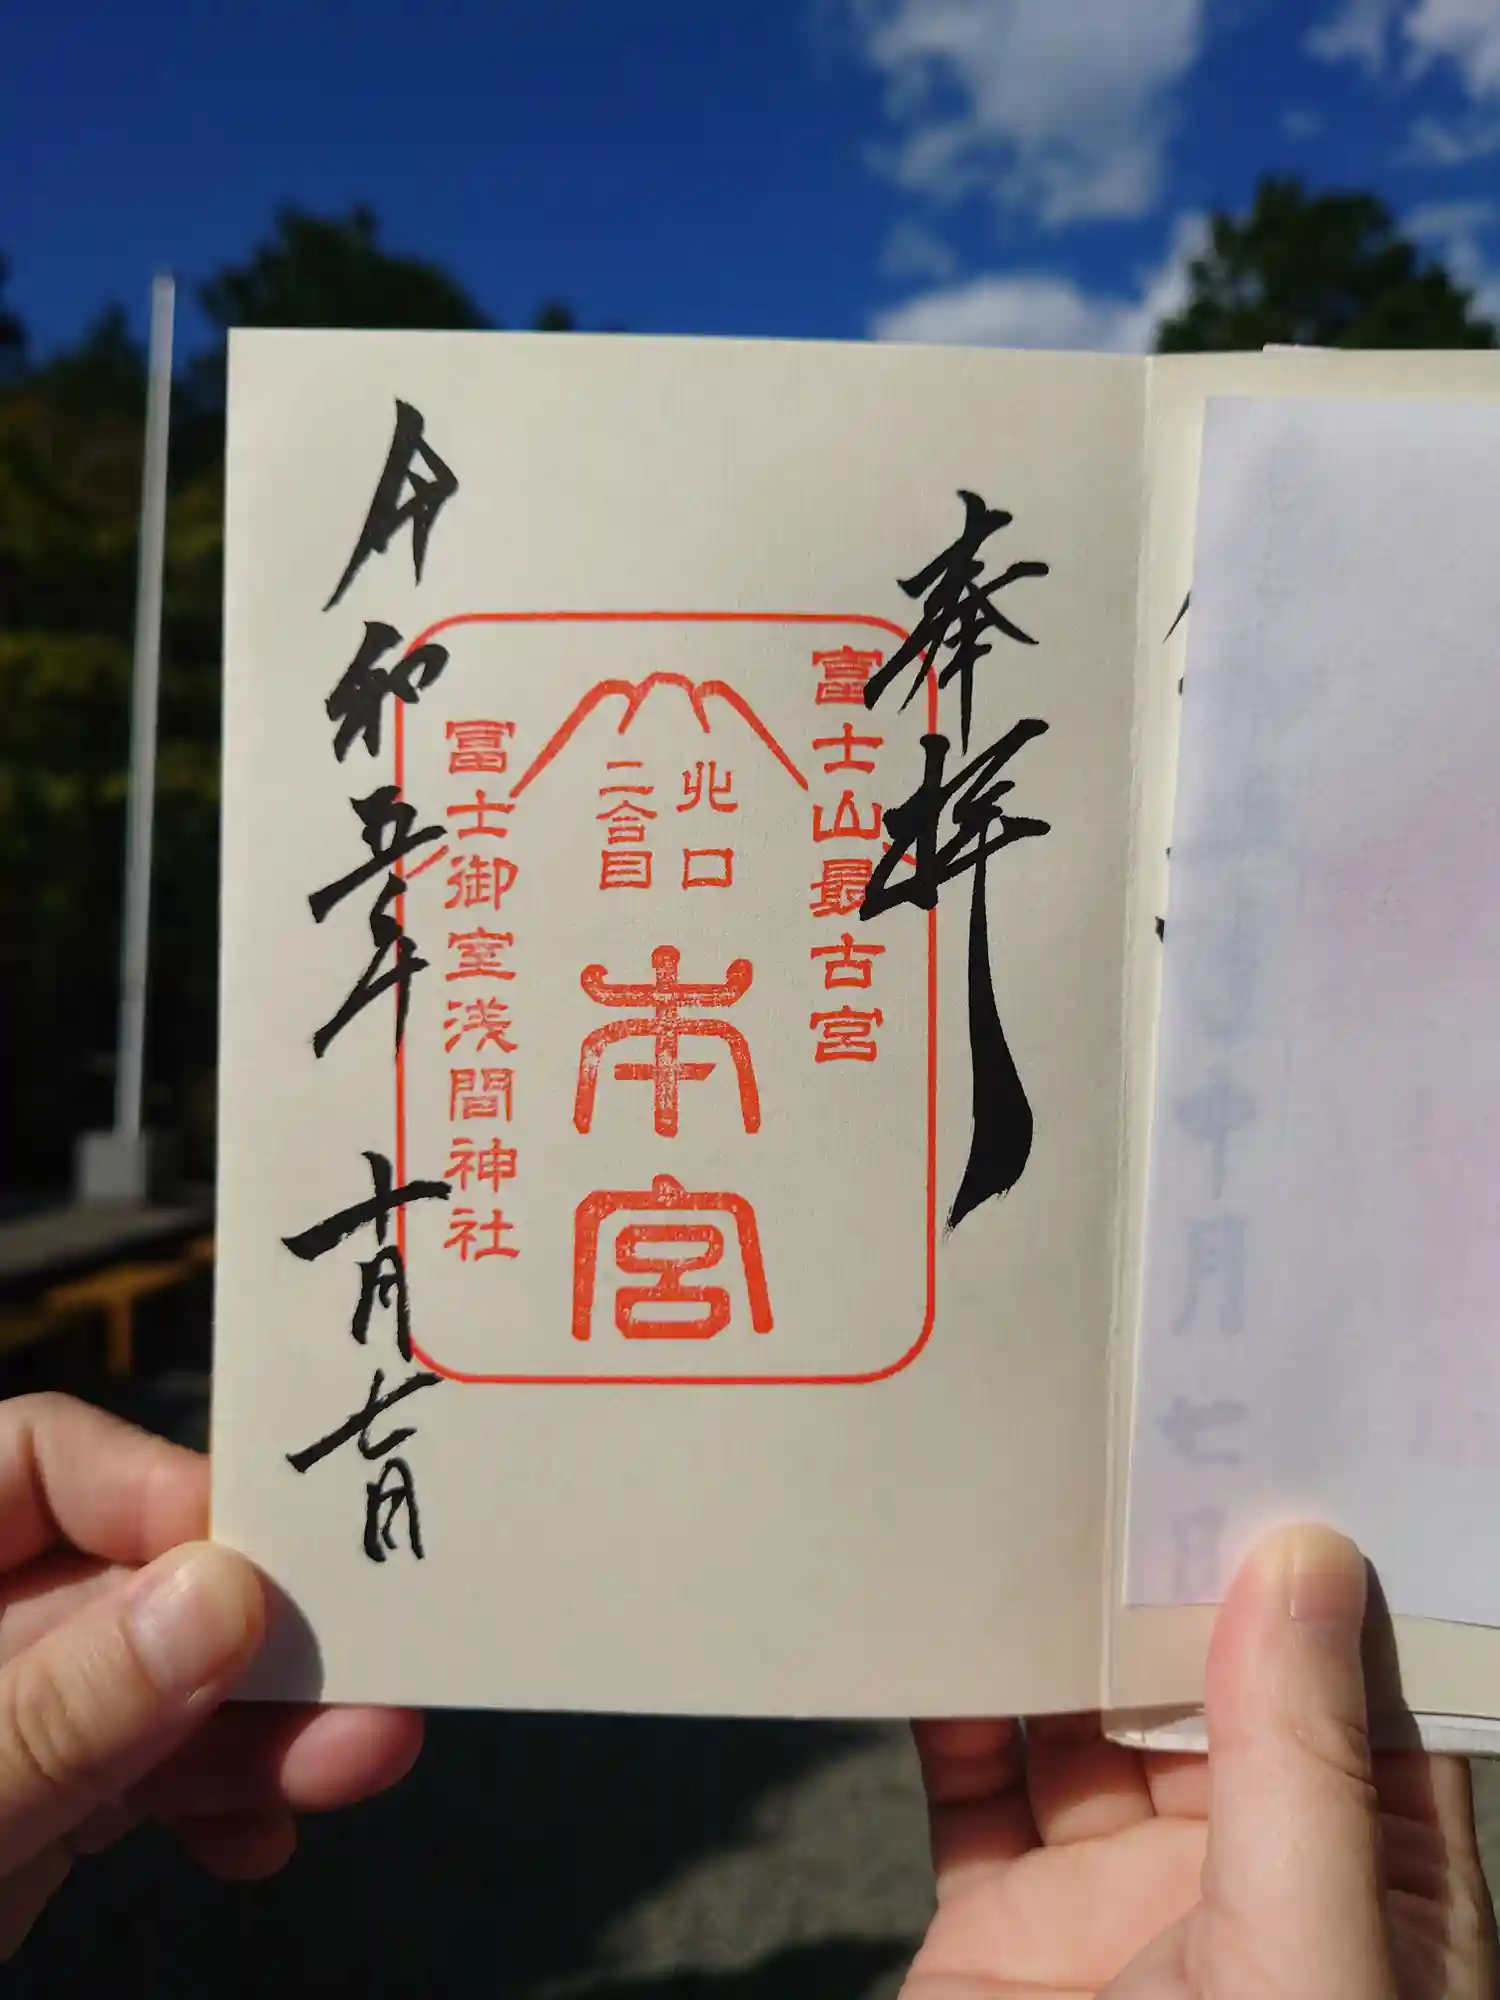 奉拝
富士山最古宮
北口
二合目
本宮
冨士御室浅間神社
令和五年 十月七日
年十月七日